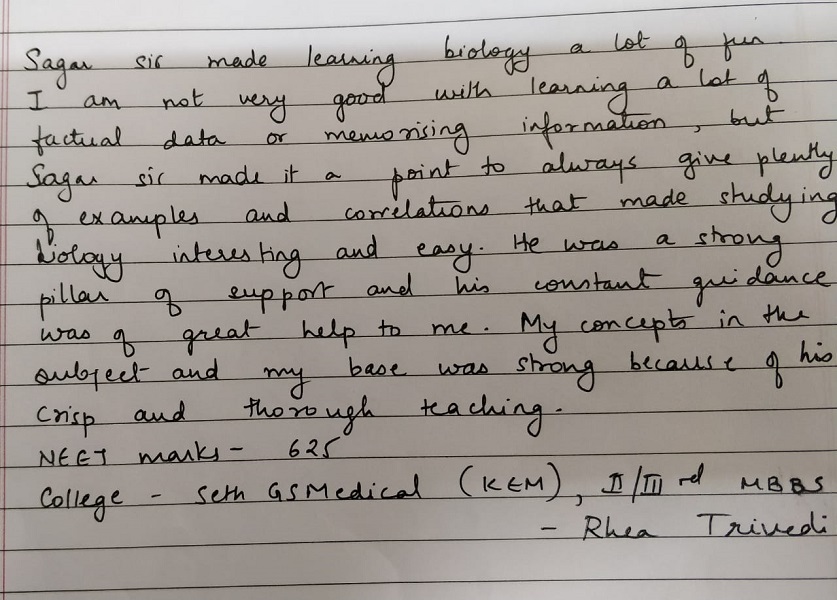 Sagar sir made learning biology a lot of fun
I am not very good with learning a lot of
factual data or memorising information, but
Sagar sir made it a point to always give plently
of examples and correlations that made studying
biology interesting and easy. He was a strong
pillar of support and his constant guidance
was of great help to me. My concepts in the
subject and my base was strong because of his
crisp and thorough teaching.
NEET marks - 625
College - Seth GSMedical (KEM), II/III rd MBBS
- Rhea Trivedi